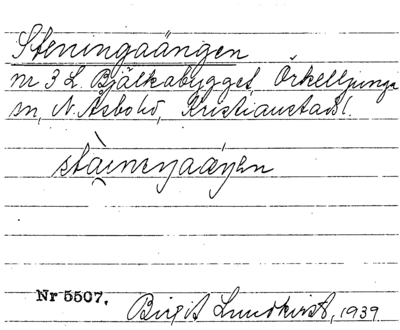 Steningaängen
nr 3 L. Bjälkabygget, Örkelljunga
sn, N. Åsbo hd, Kristianstads l.
Nr 5507.
Birgit Lundkvist, 1939